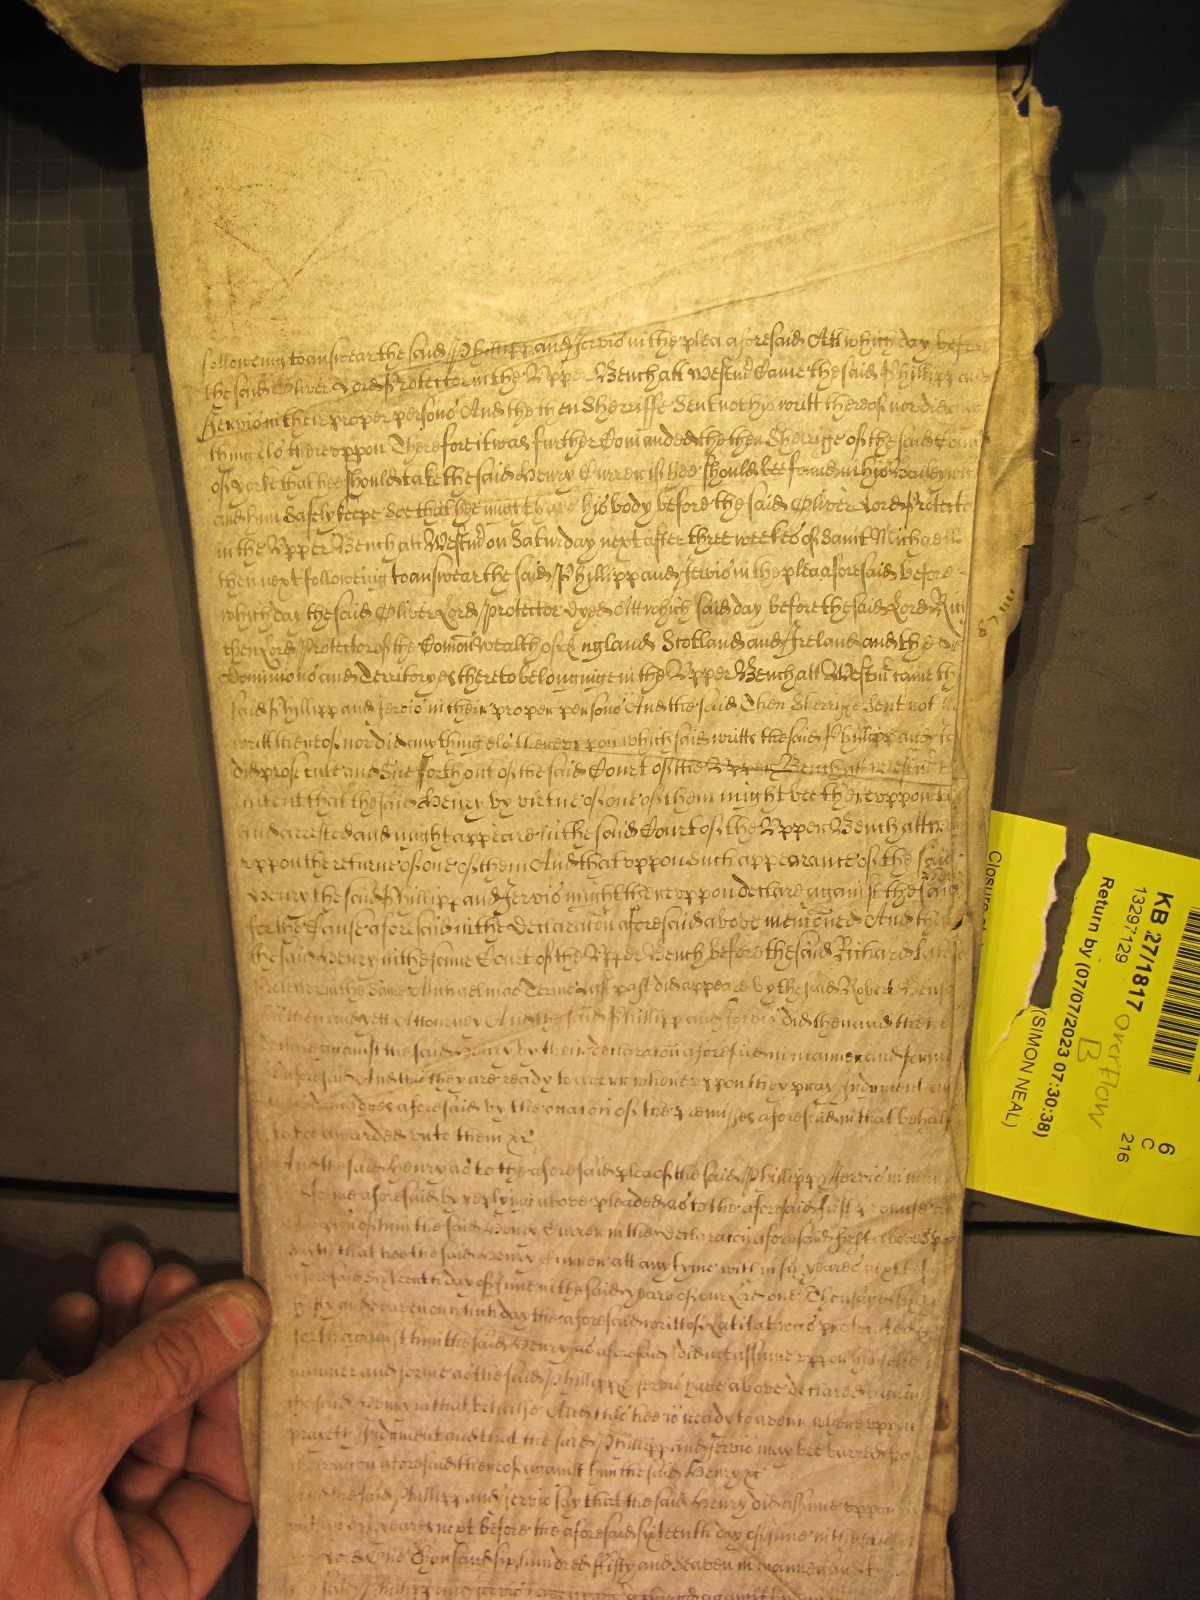 followeing to answeare the said Phillipp and Jervis in the plea aforesaid Att which day before
the said Oliver Lord Protector in the Upper Bench att Westmr Came the said Phillipp and
Jervis in their proper persons And the then Sherriffe Sent not his writt thereof nor did any
thing els thereuppon Therefore it was further Comanded the then Sherriffe of the said County
of Yorke that hee should take the said Henry Currer if hee should bee found in his Bailywick
and him Safely keepe Soe that hee might have his body before the said Oliver Lord Protector
in the Upper Bench att Westmr on Saturday next after three weekes of Saint Michaell
then next followeing to answeare the said Phillipp and Jervis in the plea aforesaid before
which day the said Oliver Lord Protector dyed Att which said day before the said Lord Richard
then Lord Protector of the Comon Wealth of England Scotland and Ireland and the
Dominions and Territoryes thereto belonginge in the Upper Bench att Westmr came the
said Phillipp and Jervis in their proper persons And the said then Sherriffe Sent not the
writt thereof nor did any thing els thereuppon which said writts the said Phillipp and Jervis
did prosecute and Sue forth out of the said Court of the Upper Bench att Westmr
intent that the said Henry by virtue of one of them might bee thereuppon
and arrested and might appeare in the said Court of the Upper Bench att
uppon the returne of one of them And that uppon such appearance of the said
Henry the said Phillipp and Jervis might thereuppon declare against the said
for the Cause aforesaid in the Declaracon aforesaid above mencioned And the
the said Henry in the same Court of the Upper Bench before the said Richard late
Protector in the Same Michaelmas Terme last past did appeare by the said Robert
Attorney And the said Phillipp and Jervis did then and there
declare against the said Henry by their declaracon aforesaid in manner and forme
aforesaid And this they are ready to averr whereuppon they pray Judgment and
damages aforesaid by the occasion of the premisses aforesaid in that behalfe
to bee awarded unto them &c
And the said Henry as to the aforesaid plea of the said Phillipp & Jervis in manner
forme aforesaid by replying above pleaded as to the aforesaid first promise and
of him the said Henry Currer in the Declaracon aforesaid first above
sayth that hee the said Henry Currer att any tyme within six yeares next before
aforesaid Sixteenth day of June in the said yeare of our Lord one Thousand
fifty and Seaven on which day the aforesaid writt of Latitat was
forth against him the said Henry as aforesaid did not assume uppon himselfe
manner and forme as the said Phillipp & Jervis have above declared against
the said Henry in that behalfe And this hee is ready to averr whereuppon
prayeth Judgment and that the said Phillipp and Jervis may bee barred from
accion aforesaid thereof against him the said Henry &c
And the said Phillipp and Jervis Say that the said Henry did assume uppon
yeares next before the aforesaid sixteenth day of June in the said
Lord One Thousand six hundred fifty and Seaven in manner and
said Phillipp and Jervis have
KB 27/1817
13297129
Return by (07/07/2023 07:30:38)
(SIMON NEAL)
Closure
Overflow
B
6
C
216